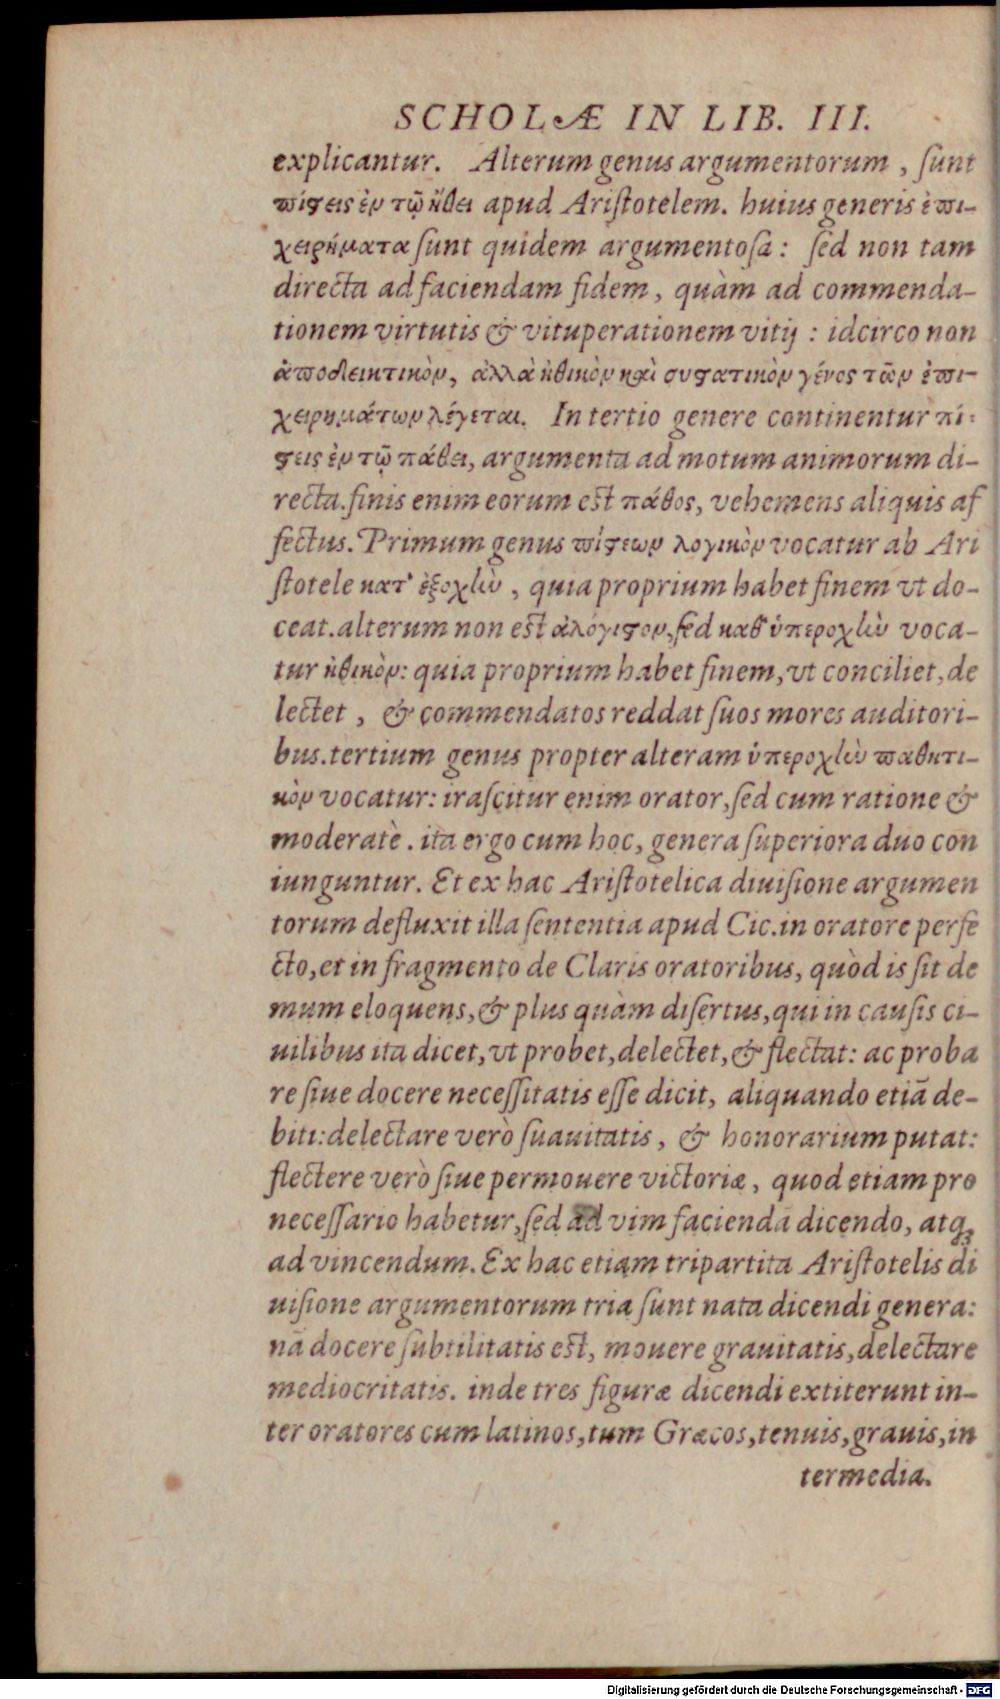 SCHOLÆ IN LIB. III.
explicantur. Alterum genus argumentorum, ſunt
πίϛεις ἐν τῷ ἤθει apud Ariſtotelem. huius generis ἐπι-
χειρήματα ſunt quidem argumentoſa: ſed non tam
directa ad faciendam fidem, quàm ad commenda-
tionem virtutis & vituperationem vitij: idcirco non
ἀποδεικτικὸν, ἀλλὰ ἠθικὸν καὶ συϛατικὸν γένος τῶν ἐπι-
χειρημάτων λέγεται. In tertio genere continentur πί-
ϛεις ἐν τῷ πάθει, argumenta ad motum animorum di-
recta. finis enim eorum est πάθος, vehemens aliquis af
fectus. Primum genus πίϛεων λογικὸν vocatur ab Ari
ſtotele κατ' ἐξοχὴν, quia proprium habet finem vt do-
ceat. alterum non est ἀλόγιϛον, ſed καθ' ὑπεροχὴν voca-
tur ἠθικὸν: quia proprium habet finem, vt conciliet, de
lectet, & commendatos reddat ſuos mores auditori-
bus. tertium genus propter alteram ὑπεροχὴν παθητι-
κὸν vocatur: iraſcitur enim orator, ſed cum ratione &
moderatè. ita ergo cum hoc, genera ſuperiora duo con
iunguntur. Et ex hac Ariſtotelica diuiſione argumen
torum defluxit illa ſententia apud Cic. in oratore perfe
cto, et in fragmento de Claris oratoribus, quòd is ſit de
mum eloquens, & plus quàm diſertus, qui in cauſis ci-
uilibus ita dicet, vt probet, delectet, & flectat: ac proba
re ſiue docere neceſſitatis eſſe dicit, aliquando etiā de-
biti: delectare verò ſuauitatis, & honorarium putat:
flectere verò ſiue permouere victoriæ, quod etiam pro
neceſſario habetur, ſed ad vim faciendā dicendo, atq;
ad vincendum. Ex hac etiam tripartita Ariſtotelis di
uiſione argumentorum tria ſunt nata dicendi genera:
nā docere ſubtilitatis est, mouere grauitatis, delectare
mediocritatis. inde tres figuræ dicendi extiterunt in-
ter oratores cum latinos, tum Græcos, tenuis, grauis, in
termedia.
Digitalisierung gefördert durch die Deutsche Forschungsgemeinschaft - DFG